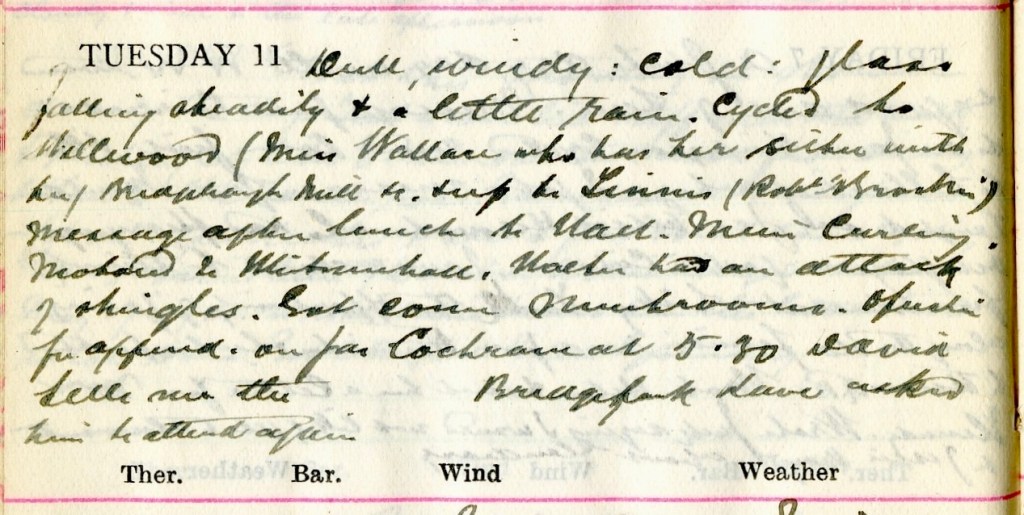 TUESDAY 11 Dull windy: cold: glass
falling steadily & a little rain. Cycled to
Wellwood (Miss Wallace who has her sister with
her) Mill &. & up to Linnis (Robt
message after lunch to Hall. Miss Curling.
Motored to Whitsomehall. Walter has an attack
of shingles. Got some Mushrooms.
for append. on Jas Cochrane at 5.30 David
tells me the have asked
him to attend again
Ther. Bar. Wind Weather